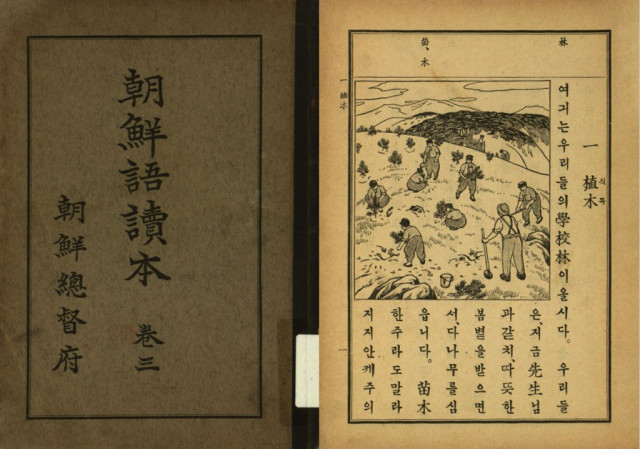 朝鮮語讀本 卷三
朝鮮總督府
林
苗木
一 植木
식목
여긔는우리들의學校林이올시다. 우리들
은,지금先生님
과갈치,따뜻한
봄볕을받으면
서,다나무를심
읍니다. 苗木
한주라도말라
지지안케주의
一 植木
一